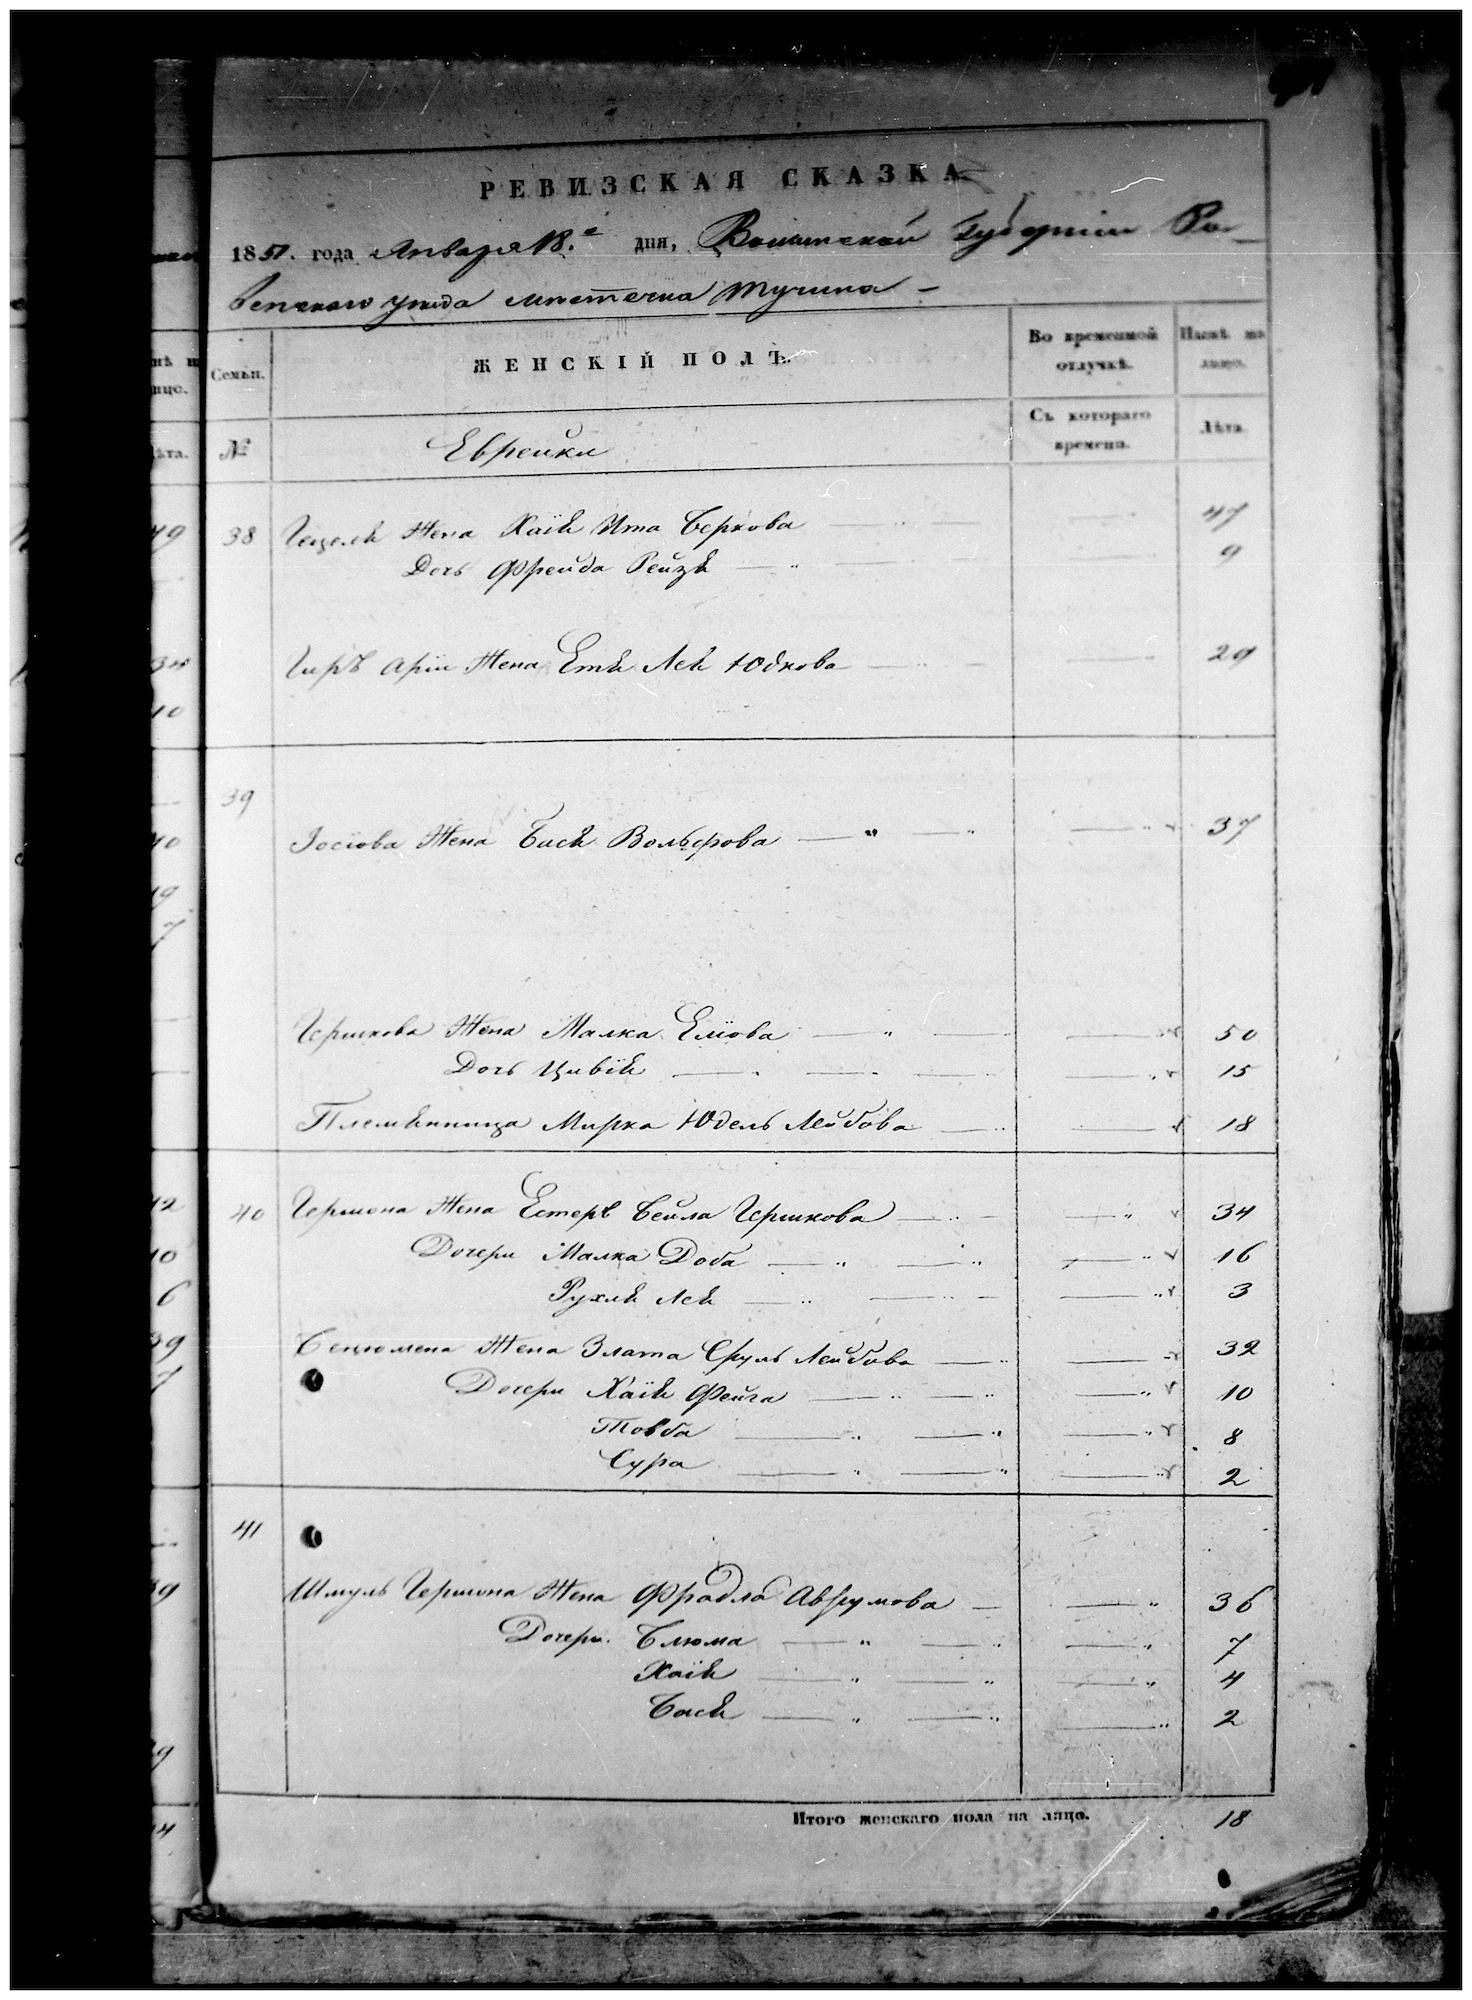 РЕВИЗСКАЯ СКАЗКА
1851. года Января 18.е дня, Волынской Губерніи Ро-
венскаго уѣзда мѣстечка Тучина -
Семьи.
ЖЕНСКІЙ ПОЛЪ.
Во временной отлучкѣ.
Нынѣ на лицо.
№
Еврейки
Съ котораго времени.
Лѣта
38 Гецеля Жена Хаія Ита Беркова 47
Дочь Фрейда Рейзя 9
Гиръ Арiи Жена Етя Лея Юдкова 29
39
Іосіова Жена Бася Вольфова 37
Гершкова Жена Малка Еліова 50
Дочь Цивія 15
Племянница Мирка Юдель Лейбова 18
40 Гершона Жена Естеръ Бейла Гершкова 34
Дочери Малка Доба 16
Рухля Лея 3
Бенцюмена Жена Злата Сруль Лейбова 32
Дочери Хаія Фейга 10
Товба 8
Сура 2
41
Шмуль Гершона Жена Фрадля Аврумова 36
Дочери. Блюма 7
Хаія 4
Бася 2
Итого женскаго пола на лицо. 18